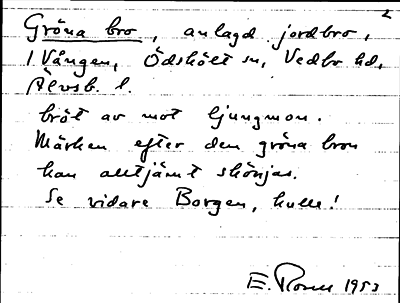 2
Gröna bro, anlagd jordbro,
i Vången, Ödskölt sn, Vedbo hd,
Älvsb. l.
bröt av mot ljungmon.
Märken efter den gröna bron
kan alltjämt skönjas.
Se vidare Borgen, kulle!
E. 1953